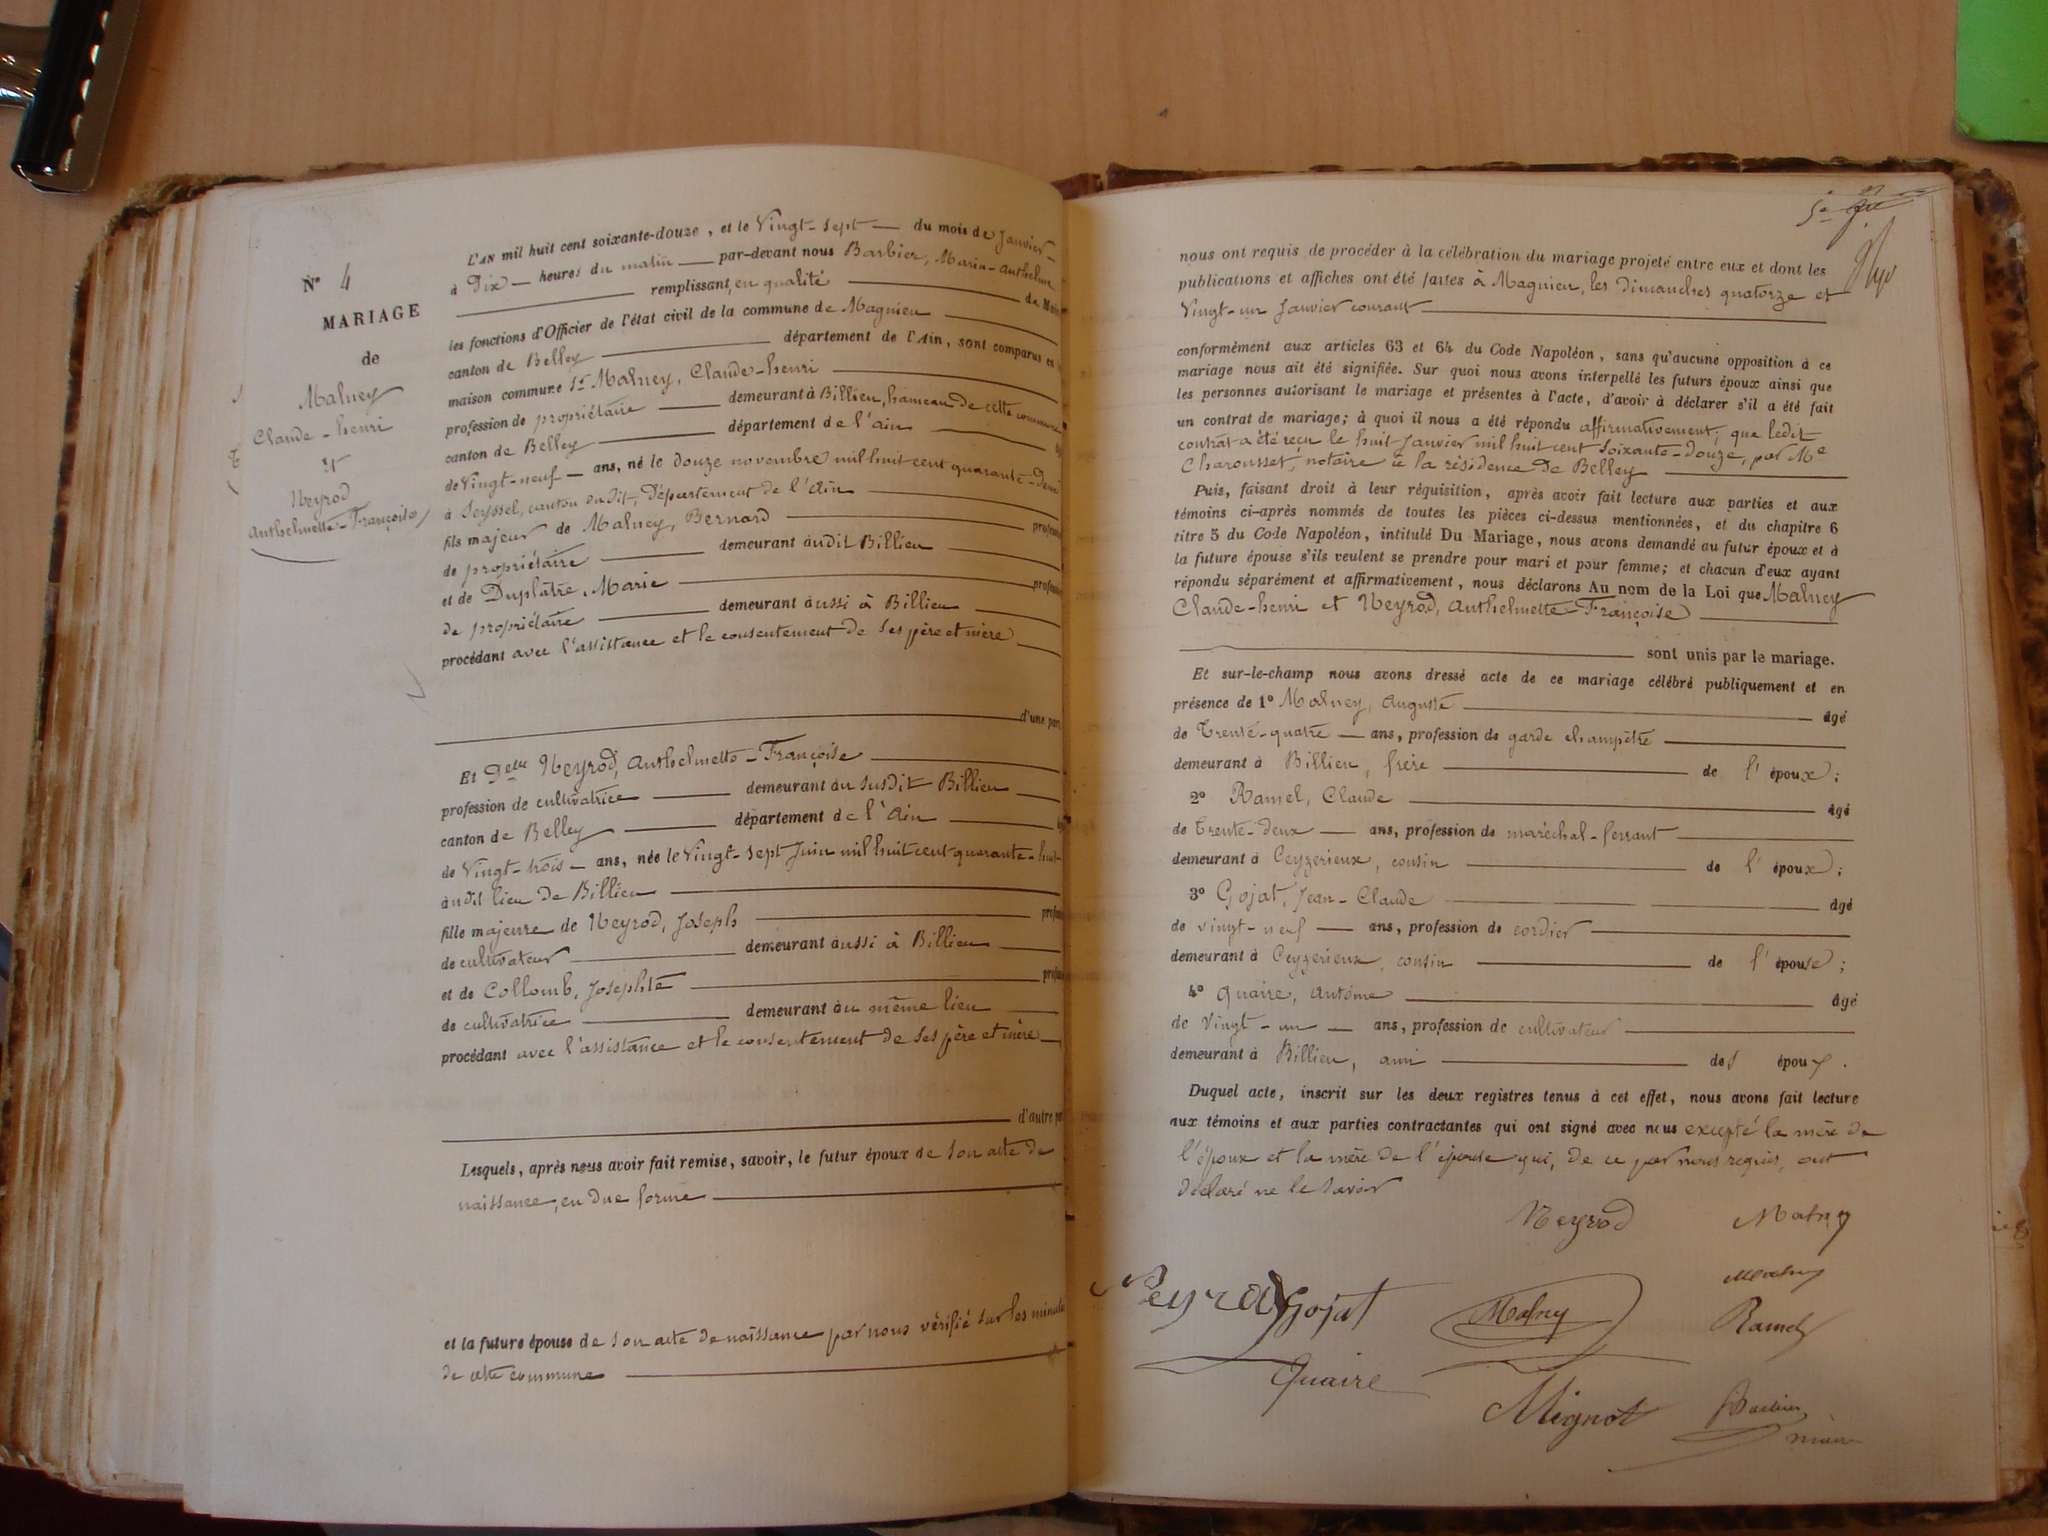 N° 4
MARIAGE
de
Malney
Claude-henri
et
Neyrod
Anthelmette-Françoise
L'AN mil huit cent soixante-douze, et le Vingt-sept du mois de Janvier
à Dix heures du matin par-devant nous Barbier, Marin-Anthelme
remplissant, en qualité de Maire
les fonctions d'Officier de l'état civil de la commune de Magnieu
canton de Belley département de l'Ain, sont comparus en
maison commune Sr Malney, Claude-henri
profession de propriétaire demeurant à Billieu, hameau de cette commune
canton de Belley département de l'Ain
de Vingt-neuf ans, né le douze novembre mil huit cent quarante-deux
à Seyssel, canton dudit, Département de l'Ain
fils majeur de Malney, Bernard profession
de propriétaire demeurant audit Billieu
et de Duplâtre, Marie profession
de propriétaire demeurant aussi à Billieu
procédant avec l'assistance et le consentement de ses père et mère
d'une part
Et Delle Neyrod, Anthelmette-Françoise
profession de cultivatrice demeurant au susdit Billieu
canton de Belley département de l'Ain
de Vingt-trois ans, née le Vingt-sept Juin mil huit cent quarante-huit
audit lieu de Billieu
fille majeure de Neyrod, Joseph profession
de cultivateur demeurant aussi à Billieu
et de Collomb, Josephte profession
de cultivatrice demeurant au même lieu
procédant avec l'assistance et le consentement de ses père et mère
d'autre part
Lesquels, après nous avoir fait remise, savoir, le futur époux de son acte de
naissance, en due forme
et la future épouse de son acte de naissance par nous vérifié sur les minutes
de cette commune
nous ont requis de procéder à la célébration du mariage projeté entre eux et dont les
publications et affiches ont été faites à Magnieu, les dimanches quatorze et
Vingt-un Janvier courant
conformément aux articles 63 et 64 du Code Napoléon, sans qu'aucune opposition à ce
mariage nous ait été signifiée. Sur quoi nous avons interpellé les futurs époux ainsi que
les personnes autorisant le mariage et présentes à l'acte, d'avoir à déclarer s'il a été fait
un contrat de mariage; à quoi il nous a été répondu affirmativement; que ledit
contrat a été reçu le huit Janvier mil huit cent soixante-douze, par Me
Charousset, notaire à la résidence de Belley
Puis, faisant droit à leur réquisition, après avoir fait lecture aux parties et aux
témoins ci-après nommés de toutes les pièces ci-dessus mentionnées, et du chapitre 6
titre 5 du Code Napoléon, intitulé Du Mariage, nous avons demandé au futur époux et à
la future épouse s'ils veulent se prendre pour mari et pour femme; et chacun d'eux ayant
répondu séparément et affirmativement, nous déclarons Au nom de la Loi que Malney
Claude-henri et Neyrod, Anthelmette-Françoise
sont unis par le mariage.
Et sur-le-champ nous avons dressé acte de ce mariage célébré publiquement et en
présence de 1° Malney, Auguste âgé
de Trente-quatre ans, profession de garde champêtre
demeurant à Billieu, frère de l'époux;
2° Ramel, Claude âgé
de Trente-deux ans, profession de maréchal-ferrant
demeurant à Ceyzerieux, cousin de l'époux;
3° Gojat, Jean-Claude âgé
de vingt-neuf ans, profession de cordier
demeurant à Ceyzerieux, cousin de l'épouse;
4° Quaire, Antoine âgé
de Vingt-un ans, profession de cultivateur
demeurant à Billieu, ami des époux.
Duquel acte, inscrit sur les deux registres tenus à cet effet, nous avons fait lecture
aux témoins et aux parties contractantes qui ont signé avec nous excepté la mère de
l'époux et la mère de l'épouse qui, de ce par nous requis, ont
déclaré ne le savoir
Neyrod Malney
Malney
Neyrod Gojat Malney Ramel
Quaire Mignot Barbier
maire